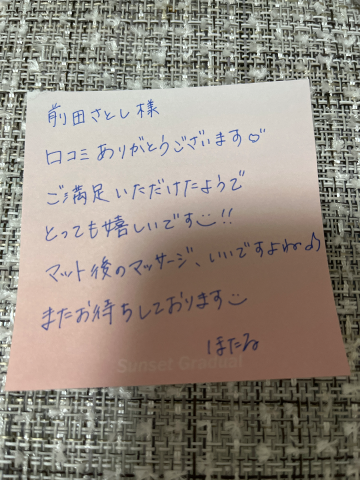 前田さとし様
口コミありがとうございます♡
ご満足いただけたようで
とっても嬉しいです☺!!
マット後のマッサージ、いいですよね♪
またお待ちしております☺
ほたる
Sunset Gradual